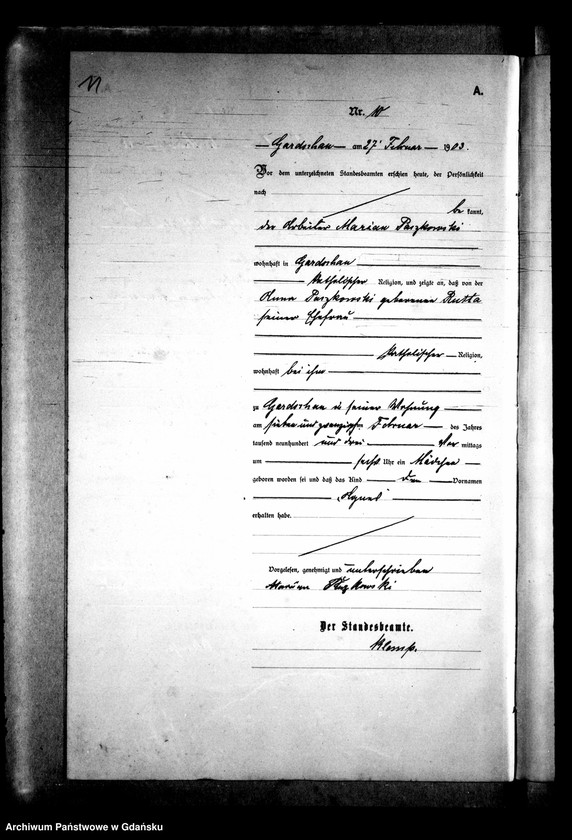 11
A.
Nr. 10
Gardschau am 27 Februar 1903.
Vor dem unterzeichneten Standesbeamten erschien heute, der Persönlichkeit
nach
be kannt,
der Arbeiter Marian Paszkowski
wohnhaft in Gardschau
katholischer Religion, und zeigte an, daß von der
Anna Paszkowski geborenen Rutta
seiner Ehefrau
katholischer Religion,
wohnhaft bei ihm
zu Gardschau in seiner Wohnung
am sieben und zwanzigsten Februar des Jahres
tausend neunhundert und drei Vor mittags
um sechs Uhr ein Mädchen
geboren worden sei und daß das Kind den Vornamen
"Agnes"
erhalten habe.
Vorgelesen, genehmigt und unterschrieben
Marian Paszkowski
Der Standesbeamte.
Klemp.
Archiwum Państwowe w Gdańsku